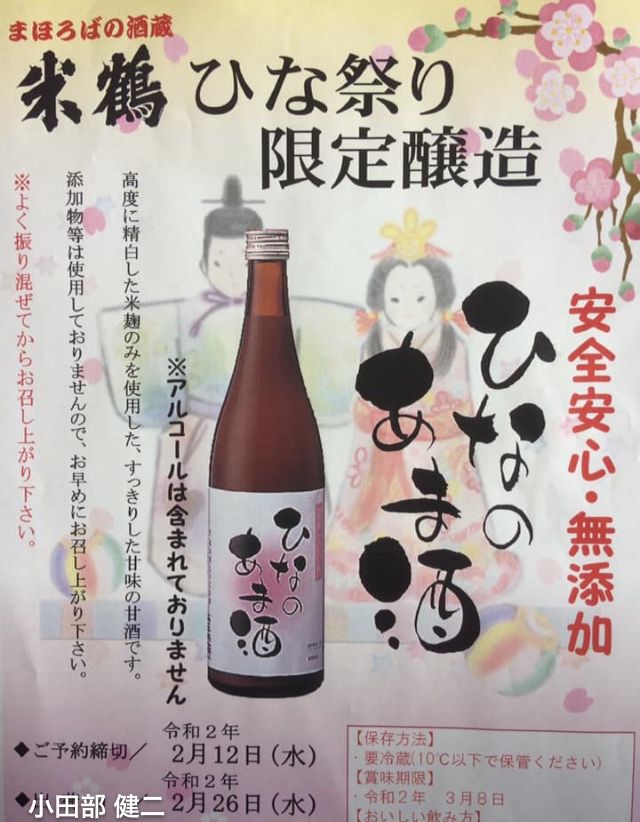 まほろばの酒蔵
米鶴 ひな祭り
限定醸造
安全安心・無添加
ひなの
あま酒
高度に精白した米麹のみを使用した、すっきりした甘味の甘酒です。
添加物等は使用しておりませんので、お早めにお召し上がり下さい。
※よく振り混ぜてからお召し上がり下さい。
※アルコールは含まれておりません
ひなの
あま酒
◆ご予約締切／ 令和２年
2月12日(水)
令和２年
2月26日(水)
小田部 健二
【保存方法】
・要冷蔵(10℃以下で保管ください)
【賞味期限】
・令和２年 ３月８日
【おいしい飲み方】